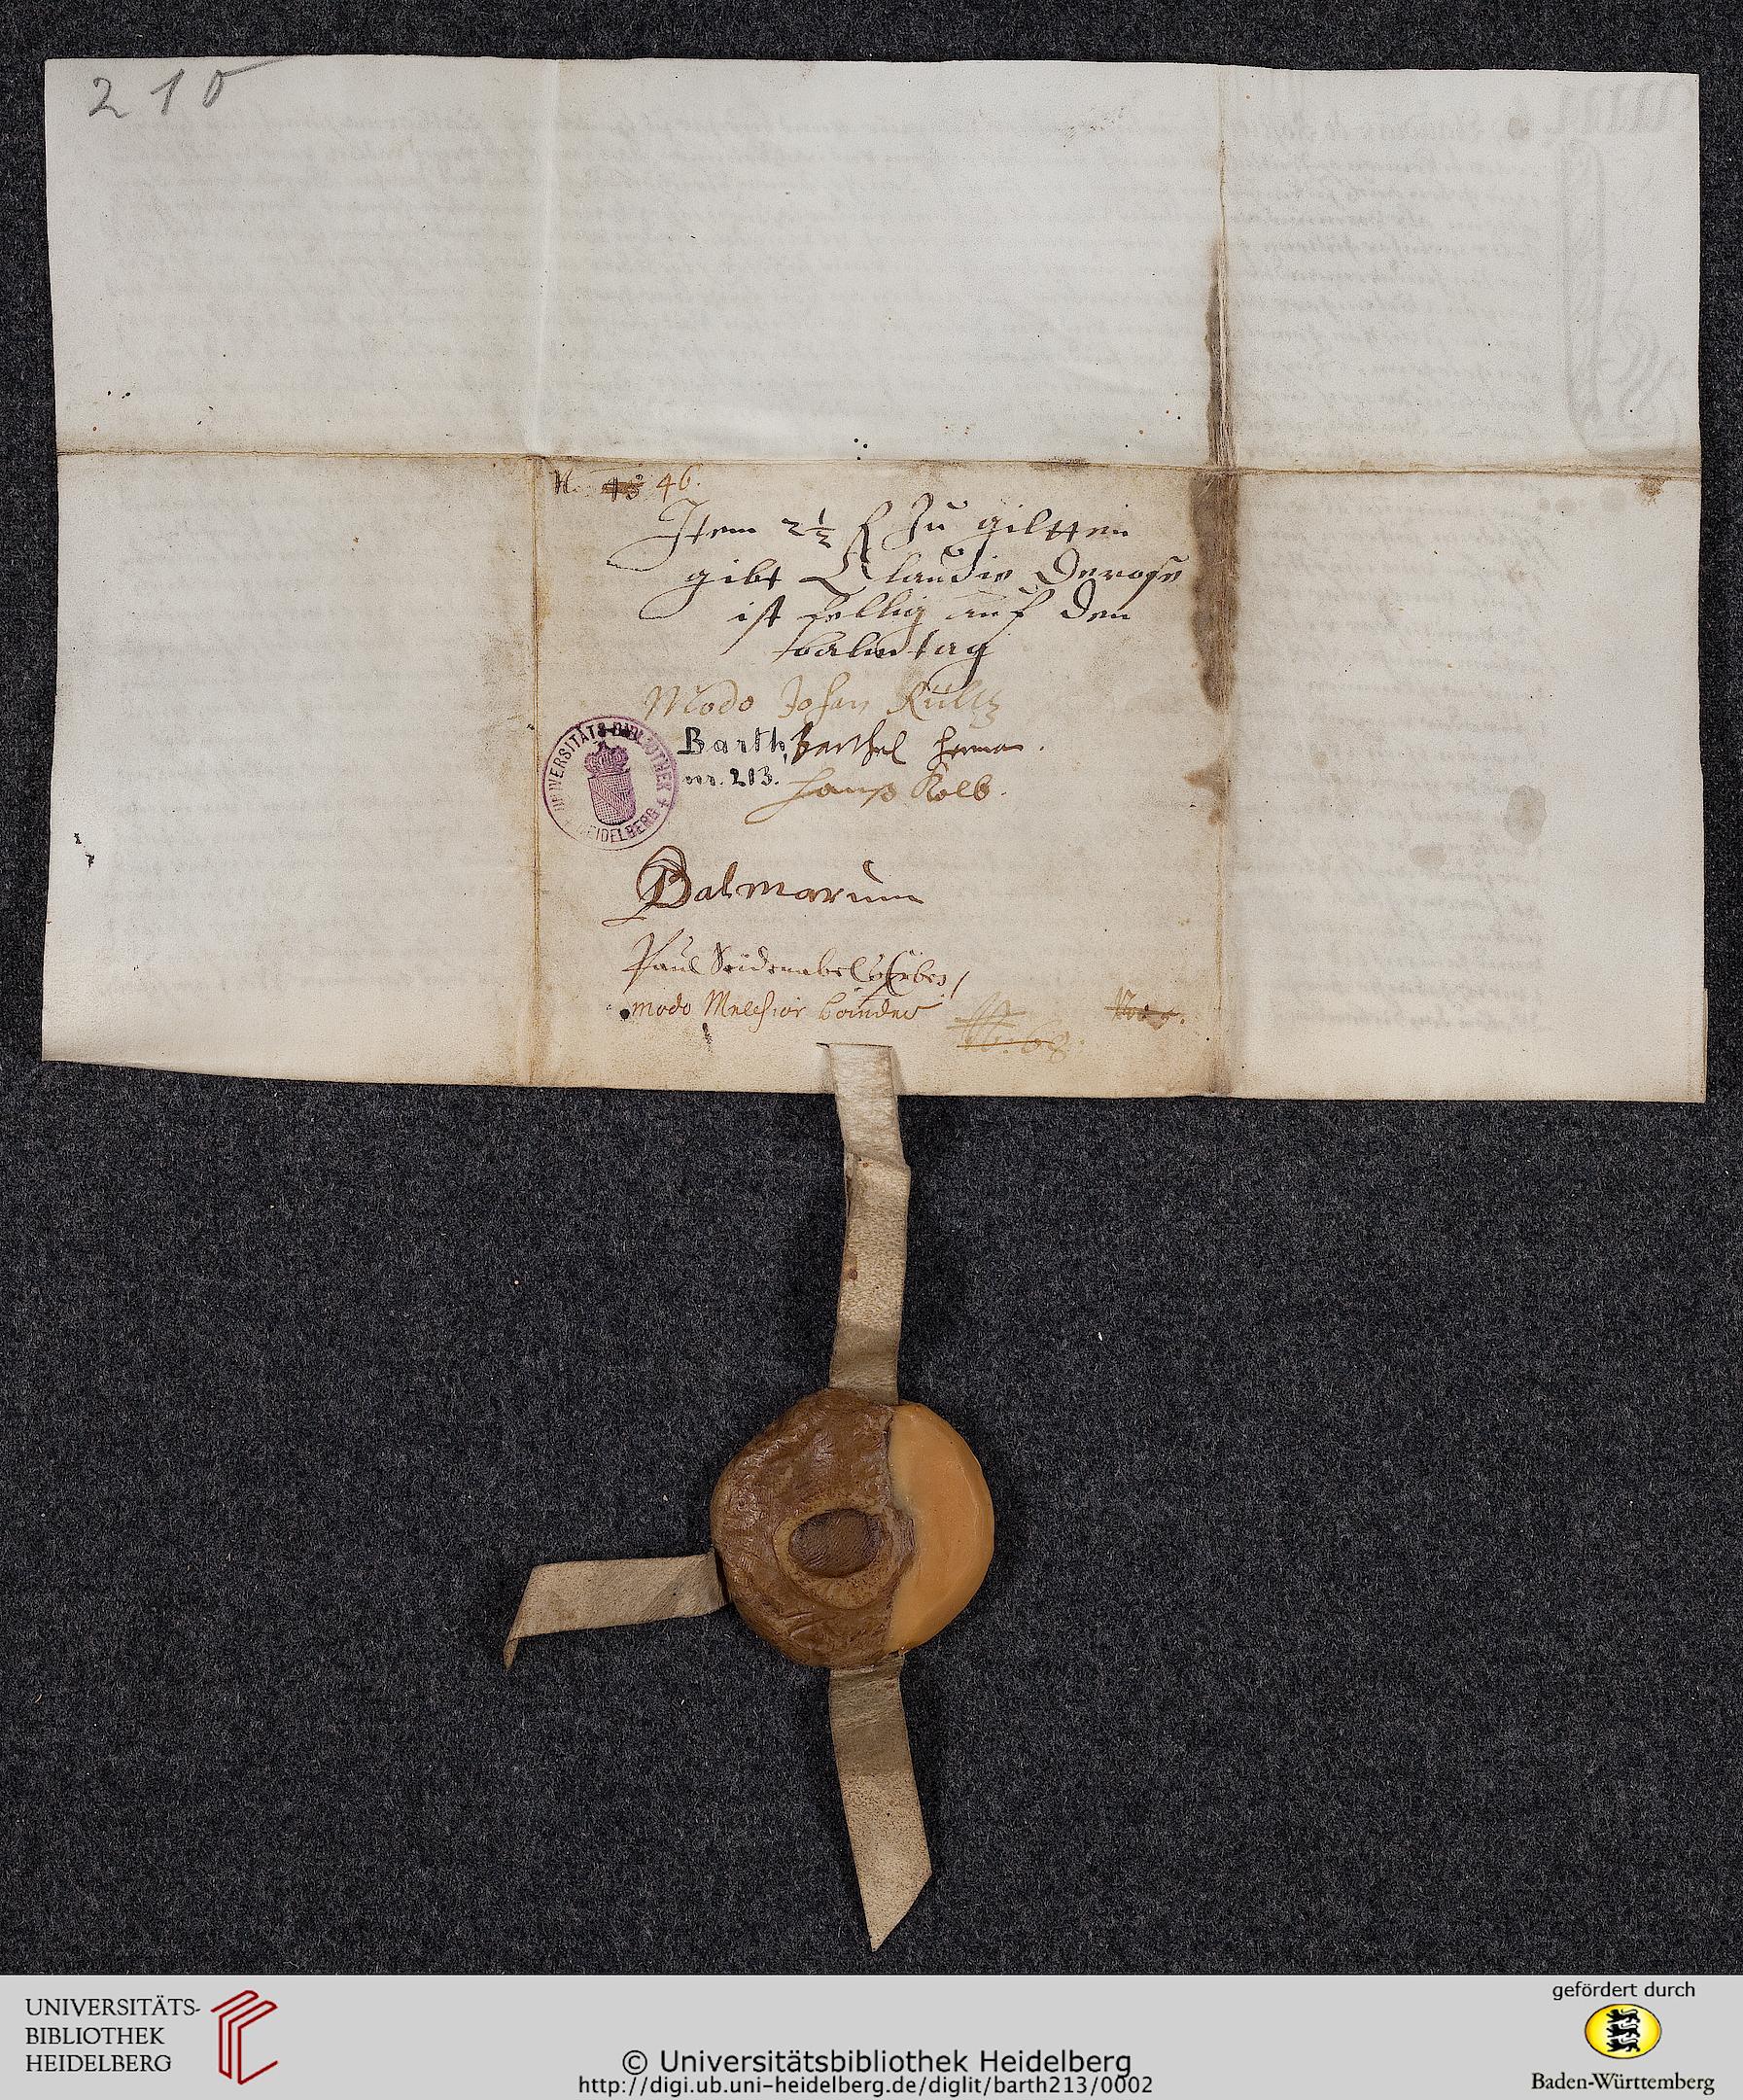 210
N. 45 46.
Item 2½ fl Zu giltten
gibt Claudie Derose
ist fellig auf den
balmtag
Modo Johan Kultz
Barth. barthel herman.
nr. 213. hanß Kolb.
UNIVERSITÄTS-BIBLIOTHEK HEIDELBERG
Palmarum
Paul Seidenabel Erben
modo Melchior
N. 68.
UNIVERSITÄTS-
BIBLIOTHEK
HEIDELBERG
© Universitätsbibliothek Heidelberg
http://digi.ub.uni-heidelberg.de/diglit/barth213/0002
gefördert durch
Baden-Württemberg